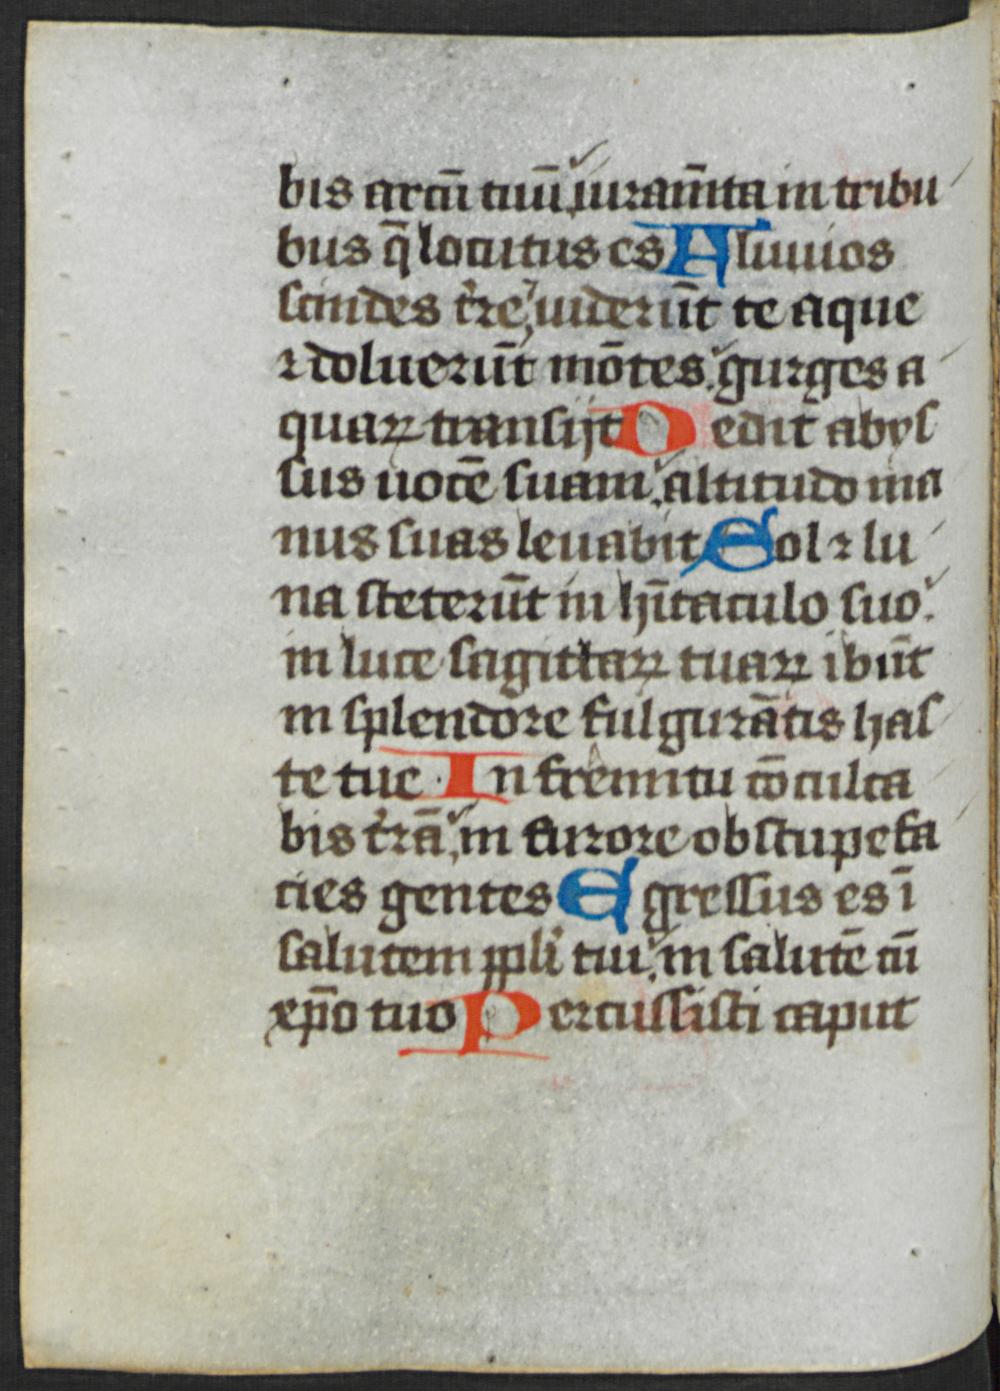 bis arcū tuū iuramīta in tribu
bus q̄ locutus es Aluuios
scindes t̓re uiderūt te aque
⁊ doluerūt mōtes gurges a
quaꝝ transijt Dedit abys
sus uocē suam altitudo ma
nus suas leuabit Sol ⁊ lu
na steterūt in hītaculo suo
in luce sagittaꝝ tuaꝝ ibūt
in splendore fulgurātis has
te tue In fremitu cōculca
bis t̓rā in furore obstupefa
cies gentes Egressus es ī
salutem ppli tui in salutē cū
xp̄o tuo Percussisti caput